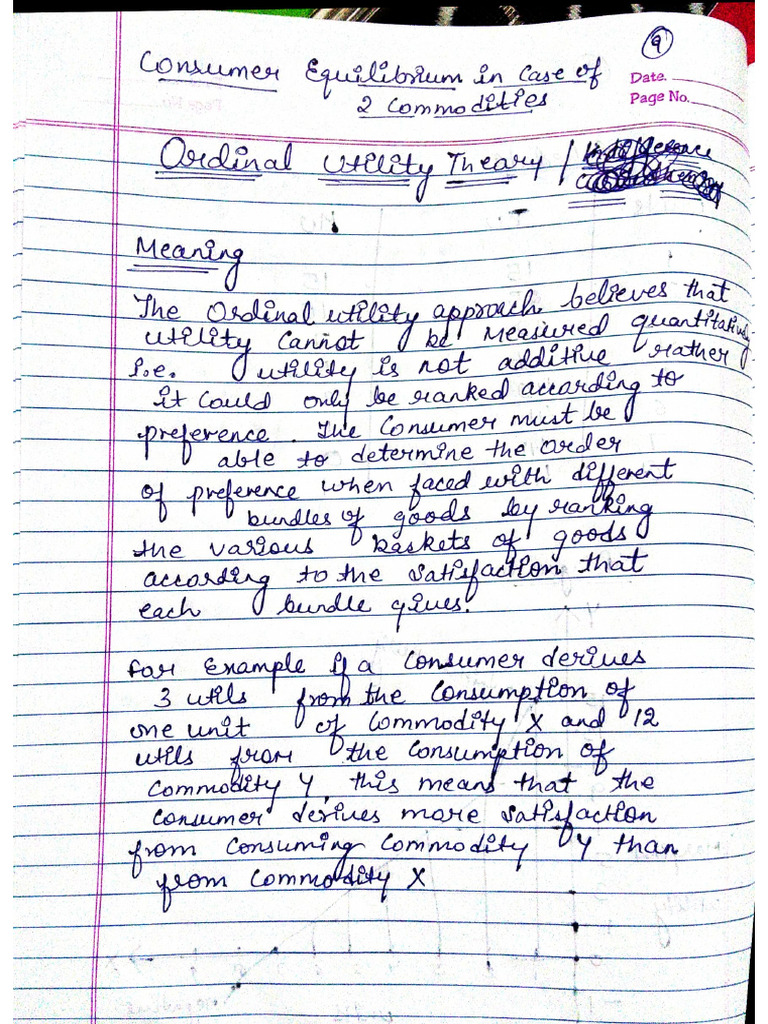 9
Consumer Equilibrium in Case of
2 Commodities
Date.
Page No.
Ordinal Utility Theory /
Meaning
The Ordinal utility approach believes that
utility cannot be measured quantitatively
i.e. utility is not additive rather
it could only be ranked according to
preference. The Consumer must be
able to determine the order
of preference when faced with different
bundles of goods by ranking
the various baskets of goods
according to the satisfaction that
each bundle gives.
For Example if a consumer derives
3 utils from the consumption of
one unit of commodity X and 12
utils from the consumption of
commodity Y, this means that the
consumer derives more satisfaction
from consuming commodity Y than
from commodity X